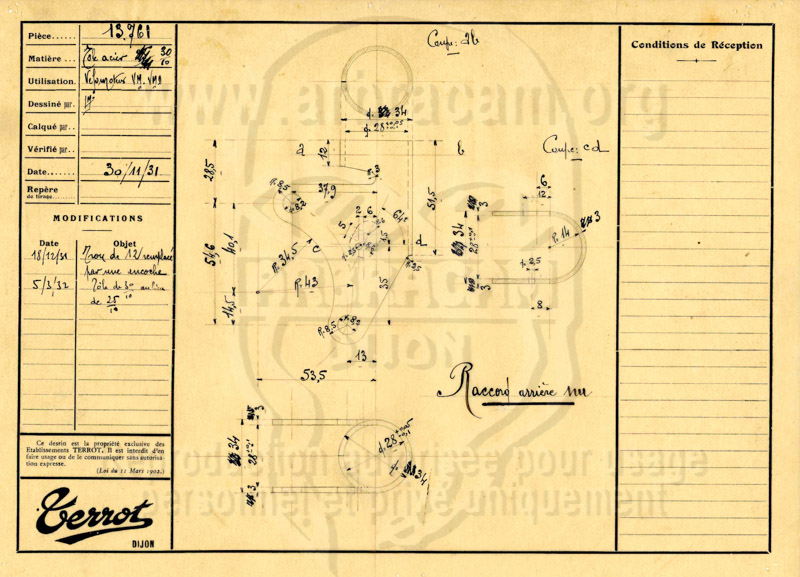 Pièce...... 13.761
Matière... Tôle acier 30/10
Utilisation. Vélomoteur VM. VMB
Dessiné par.
Calqué par..
Vérifié par..
Date....... 30/11/31
Repère
de tirage.
MODIFICATIONS
Date Objet
18/12/31 Trou de 12 remplacé
par une encoche
5/3/32 Tôle de 3m/m au lieu
de 25/10
Ce dessin est la propriété exclusive des
Etablissements TERROT. Il est interdit d'en
faire usage ou de le communiquer sans autorisa-
tion expresse.
(Loi du 11 Mars 1902.)
Terrot
DIJON
Coupe: ab
www.amracam.org
34
28
a
12
b
Coupe: cd
28,5
37,9
51,5
R.8,5
6
12
2 6
64°
5
3
34
28
R.14
3
54,6
40,1
c
d
R.34,5
R.43
35
14,5
R.8,5
8
3
13
53,5
Raccord arrière nu
AMRACAM
DIJON
3
34
28
3
28
34
Reproduction autorisée pour usage
personnel et privé uniquement
Conditions de Réception